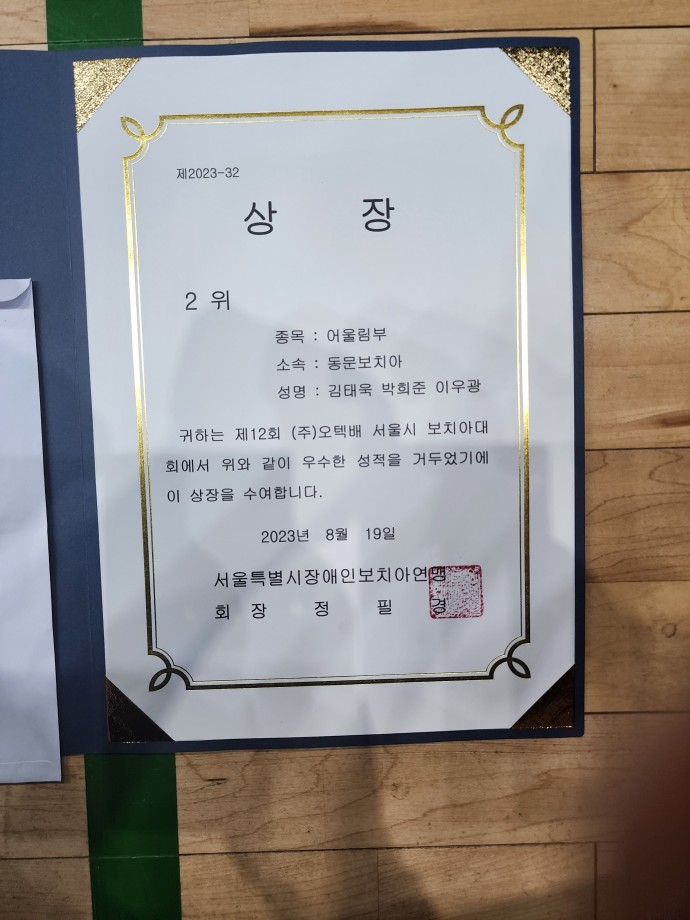 제2023-32
상 장
2 위
종목 : 어울림부
소속 : 동문보치아
성명 : 김태욱 박희준 이우광
귀하는 제12회 (주)오텍배 서울시 보치아대
회에서 위와 같이 우수한 성적을 거두었기에
이 상장을 수여합니다.
2023년 8월 19일
서울특별시장애인보치아연맹
회 장 정 필 경